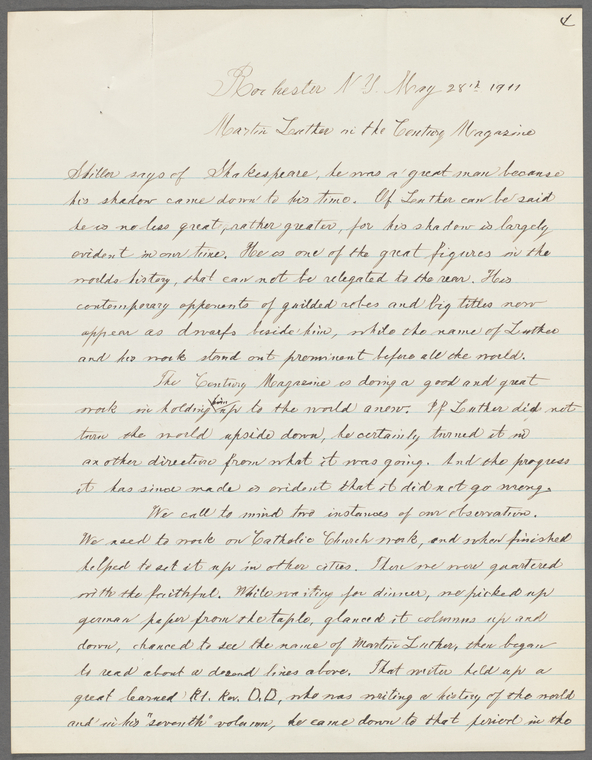 4
Rochester N Y. May 28th 1911
Martin Luther in the Century Magazine
Shiller says of Shakespeare, he was a great man because
his shadow came down to his time. Of Luther can be said
he is no less great, rather greater, for his shadow is largely
evident in our time. He is one of the great figures in the
worlds history, that can not be relegated to the rear. His
contemporary opponents of guilded robes and big titles now
appear as dwarfs beside him, while the name of Luther
and his work stand out prominent before all the world.
The Century Magazine is doing a good and great
work in holding him up to the world anew. If Luther did not
turn the world upside down, he certainly turned it in
another direction from what it was going. And the progress
it has since made is evident that it did not go wrong.
We call to mind two instances of our observation.
We used to work on Catholic Church work, and when finished
helped to set it up in other cities. There we were quartered
with the faithful. While waiting for dinner, we picked up
german paper from the table, glanced it columns up and
down, chanced to see the name of Martin Luther, then began
to read about a dozend lines above. That writer held up a
great learned Rt. Rev. D.D, who was writing a history of the world
and in his "seventh" volumn, he came down to that period in the